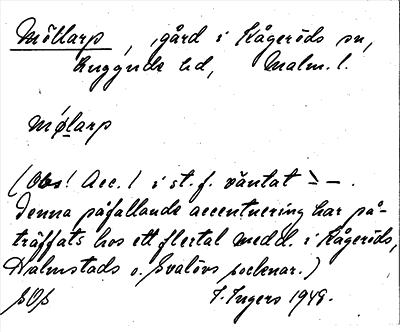 Möllarp, gård i Kågeröds sn,
Luggude hd, Malm. l.
mølarp
(Obs! Acc. 1 i st. f. väntat `–.
Denna påfallande accentuering har på-
träffats hos ett flertal medd. i Kågeröds,
Halmstads o. Svalövs socknar.)
I. Ingers 1949.